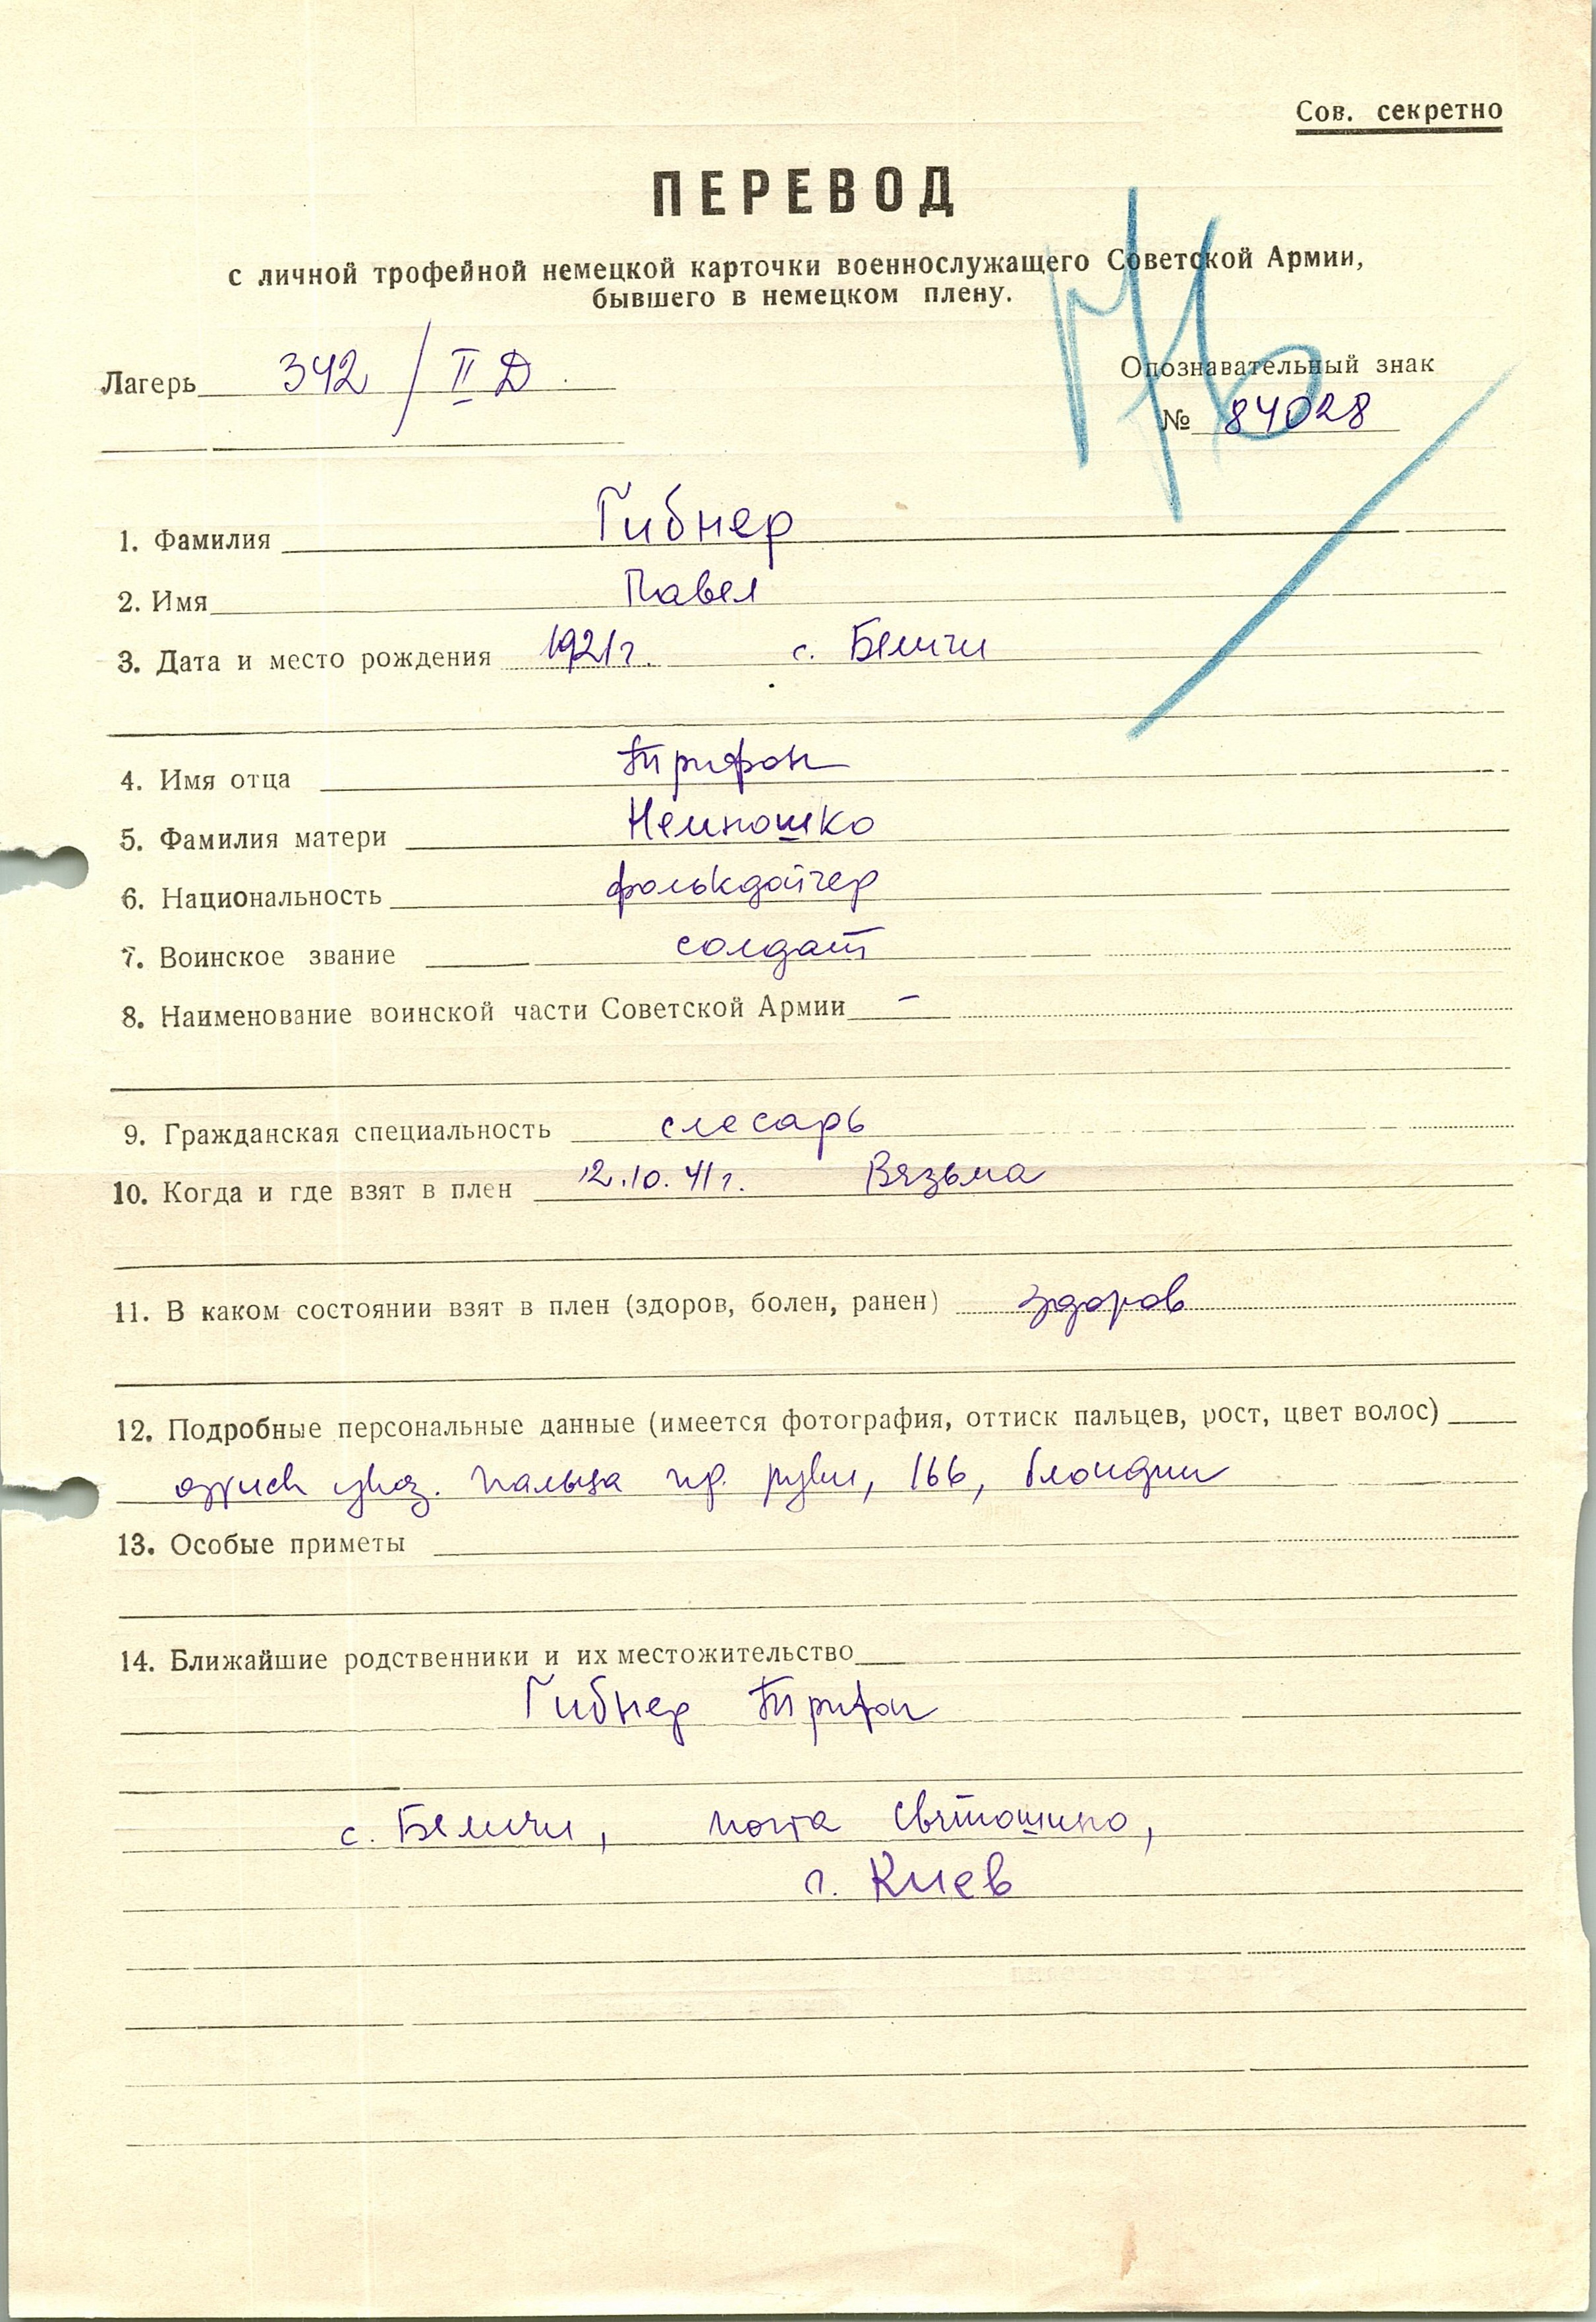 Сов. секретно
ПЕРЕВОД
с личной трофейной немецкой карточки военнослужащего Советской Армии,
бывшего в немецком плену.
Лагерь 342 / II Д
Опознавательный знак
№ 84028
1. Фамилия Гибнер
2. Имя Павел
3. Дата и место рождения 1921 г. с. Беличи
4. Имя отца Трифон
5. Фамилия матери Немношко
6. Национальность фольксдойчер
7. Воинское звание солдат
8. Наименование воинской части Советской Армии –
9. Гражданская специальность слесарь
10. Когда и где взят в плен 12.10.41 г. Вязьма
11. В каком состоянии взят в плен (здоров, болен, ранен) здоров
12. Подробные персональные данные (имеется фотография, оттиск пальцев, рост, цвет волос)
указ. пальца пр. руки, 166, блондин
13. Особые приметы
14. Ближайшие родственники и их местожительство
Гибнер Трифон
с. Беличи, почта Святошино,
г. Киев